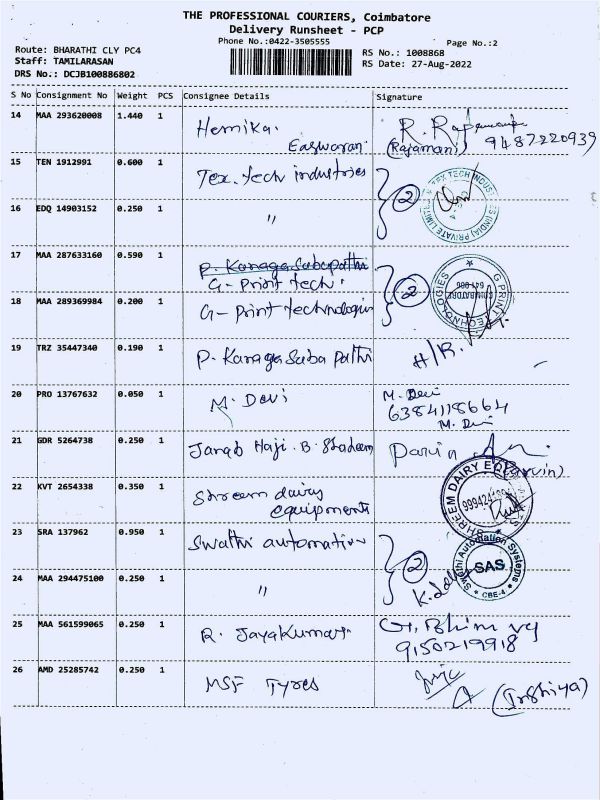 THE PROFESSIONAL COURIERS, Coimbatore
Delivery Runsheet - PCP
Phone No.:0422-3505555
Page No.:2
Route: BHARATHI CLY PC4
RS No.: 1008868
Staff: TAMILARASAN
RS Date: 27-Aug-2022
DRS No.: DCJB100886802
S No Consignment No Weight PCS Consignee Details Signature
14 MAA 293620008 1.440 1 Hemika. Easwaran. R.
(Rajamani) 9487220939
15 TEN 1912991 0.600 1 Tex. tech industries 2
TEX TECH INDUSTRIES (INDIA) PRIVATE LIMITED
16 EDQ 14903152 0.250 1 "
17 MAA 287633160 0.590 1 P. Kanaga Sabapathi
G- Print tech. 2
G PRINT TECHNOLOGIES
COIMBATORE
18 MAA 289369984 0.200 1 G- Print technologin
19 TRZ 35447340 0.190 1 P. Kanaga Saba Pathi H/R.
20 PRO 13767632 0.050 1 M. Devi M. Devi
6384118664
M. Devi
21 GDR 5264738 0.250 1 Janab Haji. B.
(Parvin)
22 KVT 2654338 0.350 1 Shreem dairy
equipments
SHREEM DAIRY
23 SRA 137962 0.950 1 Swathi automation 2
Swathi Automation Systems
SAS
CBE-4
24 MAA 294475100 0.250 1 "
25 MAA 561599065 0.250 1 R. Jayakumar.
9150219918
26 AMD 25285742 0.250 1 MSF Tyres